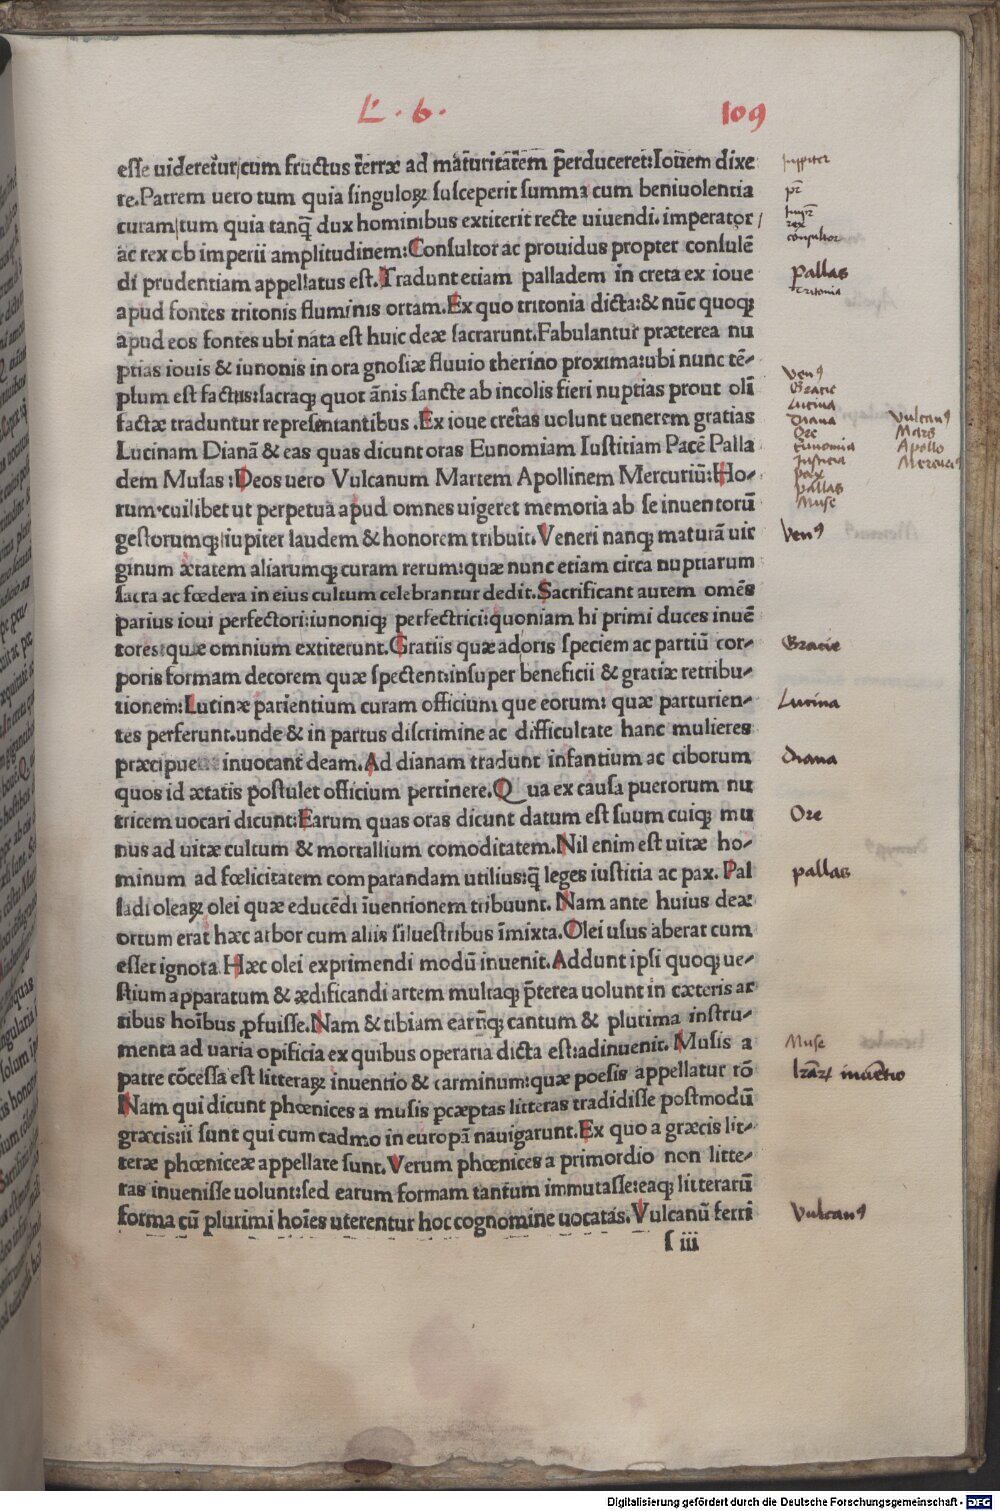 L'. 6. 109
esse uideretur/cum fructus terræ ad maturitatem perduceret:Iouem dixe
re.Patrem uero tum quia singuloꝝ susceperit summa cum beniuolentia
curam/tum quia tanq̄ dux hominibus extiterit recte uiuendi. imperator/
ac rex ob imperii amplitudinem:Consultor ac prouidus propter consulē
di prudentiam appellatus est.Tradunt etiam palladem in creta ex ioue
apud fontes tritonis fluminis ortam.Ex quo tritonia dicta:& nūc quoqꝫ
apud eos fontes ubi nata est huic deæ sacrarunt.Fabulantur præterea nu
ptias iouis & iunonis in ora gnosiæ fluuio therino proxima:ubi nunc tē-
plum est factus:sacraqꝫ quot ānis sancte ab incolis fieri nuptias prout olī
factæ traduntur repręsentantibus .Ex ioue cretas uolunt uenerem gratias
Lucinam Dianā & eas quas dicunt oras Eunomiam Iustitiam Pacē Palla
dem Musas:Deos uero Vulcanum Martem Apollinem Mercuriū:Ho-
rum cuilibet ut perpetua apud omnes uigeret memoria ab se inuentorū
gestorumqꝫ/iupiter laudem & honorem tribuit.Veneri nanqꝫ maturā uir
ginum ætatem aliarumqꝫ curam rerum:quæ nunc etiam circa nuptiarum
sacra ac fœdera in eius cultum celebrantur dedit.Sacrificant autem omēs
parius ioui perfectori:iunoniqꝫ perfectrici:quoniam hi primi duces inuē
tores:quæ omnium extiterunt.Gratiis quæ adoris speciem ac partiū cor-
poris formam decorem quæ spectent:insuper beneficii & gratiæ retribu-
tionem:Lucinæ parientium curam officium que eorum: quæ parturien-
tes perferunt.unde & in partus discrimine ac difficultate hanc mulieres
præcipue inuocant deam.Ad dianam tradunt infantium ac ciborum
quos id ætatis postulet officium pertinere.Q ua ex causa puerorum nu
tricem uocari dicunt:Earum quas oras dicunt datum est suum cuiqꝫ mu
nus ad uitæ cultum & mortallium comoditatem.Nil enim est uitæ ho-
minum ad fœlicitatem comparandam utilius:q̄ leges iustitia ac pax. Pal
ladi oleaꝝ olei quæ educēdi iuentionem tribuunt. Nam ante huius deæ
ortum erat hæc arbor cum aliis siluestribus īmixta.Olei usus aberat cum
esset ignota.Hæc olei exprimendi modū inuenit.Addunt ipsi quoqꝫ ue-
stium apparatum & ædificandi artem multaqꝫ p̄terea uolunt in cæteris ar
tibus hoībus ꝓfuisse.Nam & tibiam earūqꝫ cantum & plurima instru-
menta ad uaria opificia ex quibus operaria dicta est:adinuenit. Musis a
patre cōcessa est litteraꝝ inuentio & carminum:quæ poesis appellatur rō
Nam qui dicunt phœnices a musis pcæptas litteras tradidisse postmodū
græcis:ii sunt qui cum cadmo in europā nauigarunt.Ex quo a græcis lit-
teræ phœniceæ appellate sunt.Verum phœnices a primordio non litte-
ras inuenisse uolunt:sed earum formam tantum immutasse:eaqꝫ litterarū
forma cū plurimi hoīes uterentur hoc cognomine uocatas.Vulcanū ferri
s iii
Juppiter
rex
consultor
pallas
tritonia
Venꝰ
Gracie
Lucina
Diana
Ore
Eunomia
Justicia
pax
pallas
Muse
Vulcanꝰ
Mars
Apollo
Mercuriꝰ
Venꝰ
Gracie
Lucina
Diana
Ore
pallas
Muse
lr̄aꝝ inuentio
Vulcanꝰ
Digitalisierung gefördert durch die Deutsche Forschungsgemeinschaft - DFG